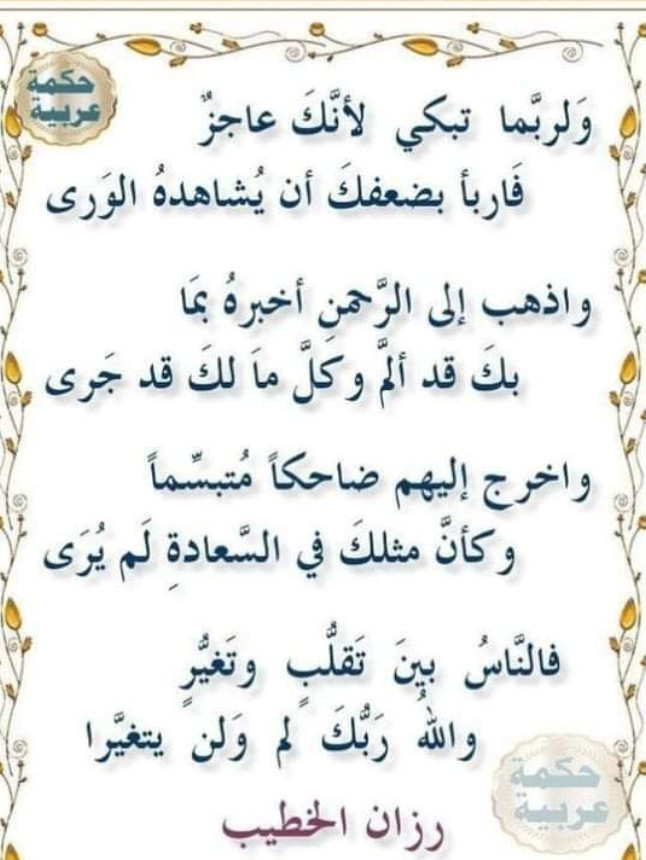 حكمة
عربية
وَلربَّما تبكي لأنَّكَ عاجزٌ
فَاربأ بضعفكَ أن يُشاهدهُ الوَرى
واذهب إلى الرَّحمنِ أخبرهُ بمَا
بكَ قد ألمَّ وكلَّ ماَ لكَ قد جَرى
واخرج إليهم ضاحكاً مُتبسِّماً
وكأنَّ مثلكَ في السَّعادةِ لَم يُرَى
فالنَّاسُ بينَ تَقلُّبٍ وتَغيُّرٍ
واللهُ رَبُّكَ لم وَلن يتغيَّرا
حكمة
عربية
رزان الخطيب